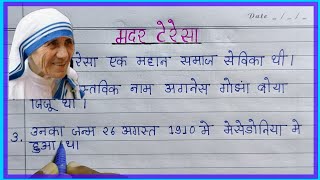 Date _ / _ / _
मदर टेरेसा
रेसा एक महान समाज सेविका थी।
स्तविक नाम अगनेस गोंझा बोया
जिजू था।
3. उनका जन्म 26 अगस्त 1910 मे मेसेडोनिया मे
हुआ था